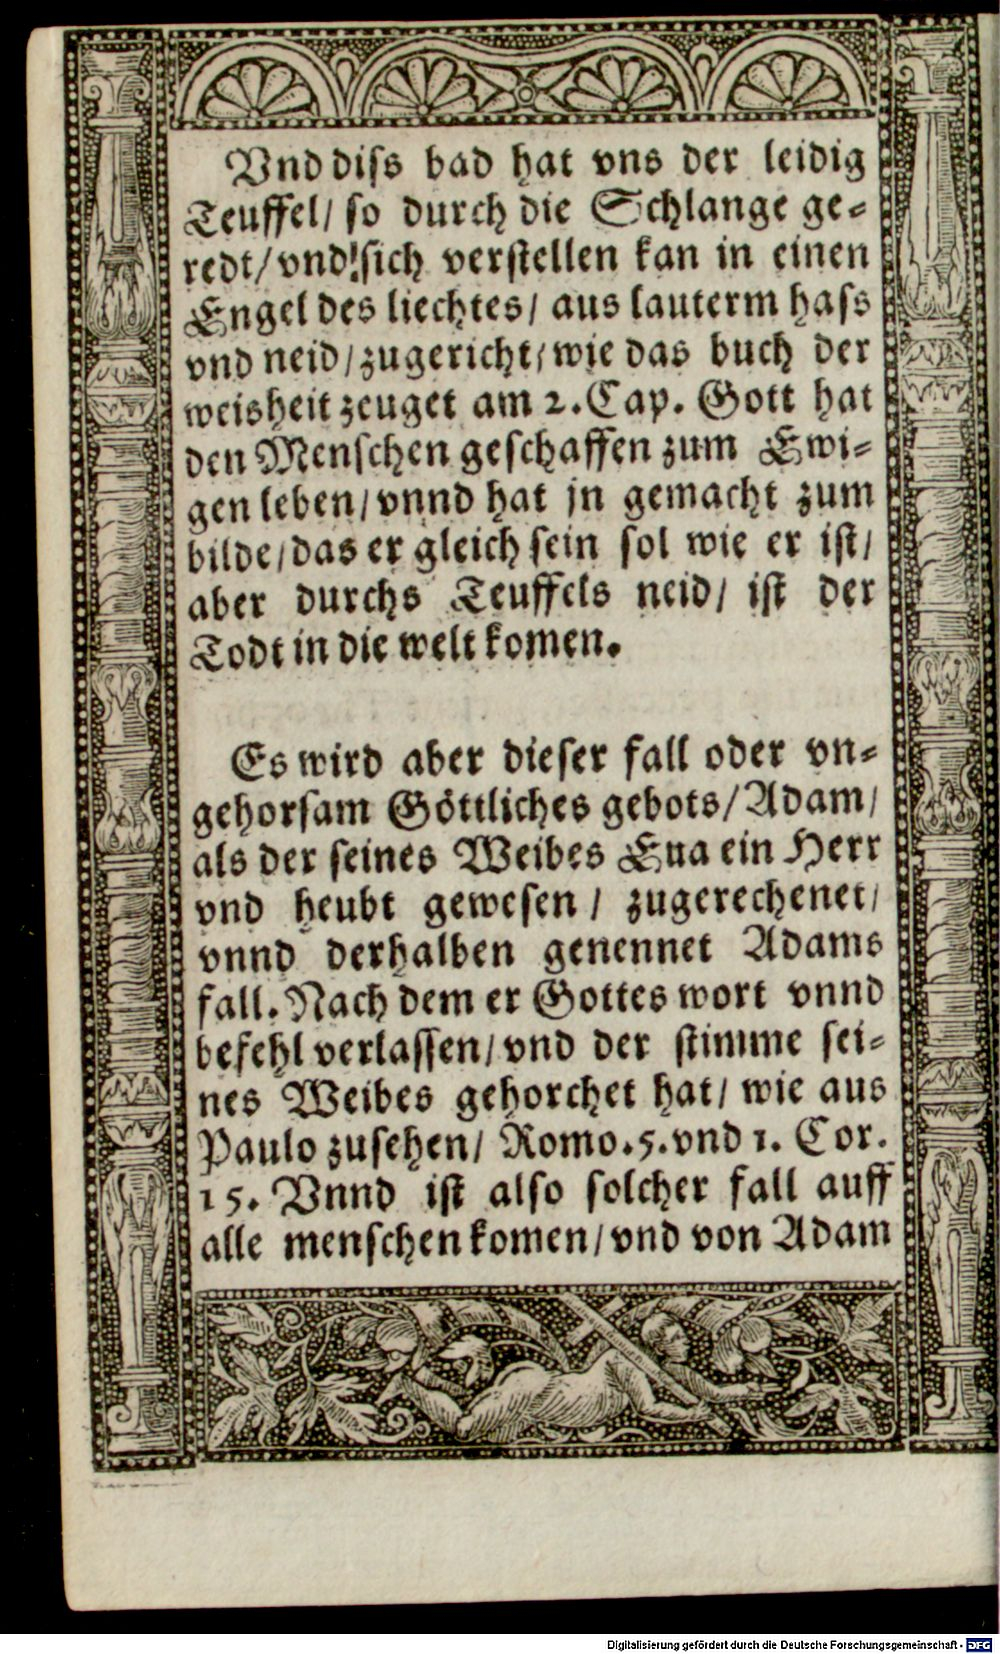 Vnd diſs bad hat vns der leidig
Teuffel/ ſo durch die Schlange ge⸗
redt/ vnd ſich verſtellen kan in einen
Engel des liechtes/ aus lauterm haſs
vnd neid/ zugericht/ wie das buch der
weisheit zeuget am 2. Cap. Gott hat
den Menſchen geſchaffen zum Ewi⸗
gen leben/ vnnd hat jn gemacht zum
bilde/ das er gleich ſein ſol wie er iſt/
aber durchs Teuffels neid/ iſt der
Todt in die welt komen.
Es wird aber dieſer fall oder vn⸗
gehorſam Göttliches gebots/ Adam/
als der ſeines Weibes Eua ein Herr
vnd heubt geweſen/ zugerechenet/
vnnd derhalben genennet Adams
fall. Nach dem er Gottes wort vnnd
befehl verlaſſen/ vnd der ſtimme ſei⸗
nes Weibes gehorchet hat/ wie aus
Paulo zuſehen/ Romo. 5. vnd 1. Cor.
15. Vnnd iſt alſo ſolcher fall auff
alle menſchen komen/ vnd von Adam
Digitalisierung gefördert durch die Deutsche Forschungsgemeinschaft - DFG